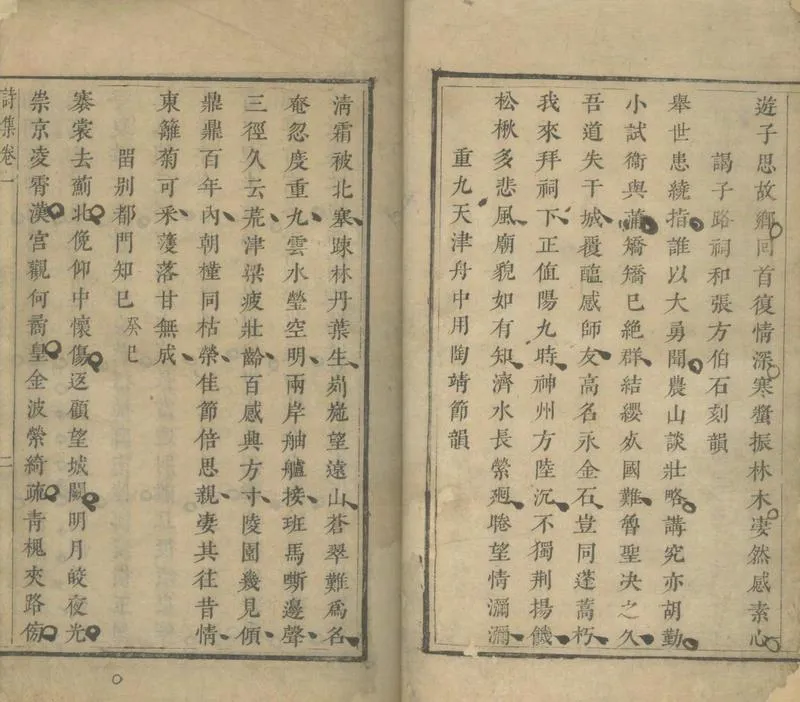 遊子思故鄉回首復情深寒螿振林木凄然感素心
謁子路祠和張方伯石刻韻
舉世患繞指誰以大勇聞農山談壯略講究亦胡勤
小試衛與蒲矯矯已絶群結纓國難魯聖決之久
吾道失干城覆醢感師友高名永金石豈同蓬蒿朽
我來拜祠下正值陽九時神州方陸沉不獨荆揚饑
松楸多悲風廟貌如有知濟水長縈廻睠望情瀰瀰
重九天津舟中用陶靖節韻
清霜被北塞踈林丹葉生屴崺望遠山蒼翠難爲名
奄忽度重九雲水瑩空明兩岸舳艫接班馬嘶邊聲
三徑久云荒津梁疲壯齡百感興方寸陵園幾見傾
鼎鼎百年內朝槿同枯榮佳節倍思親凄其往昔情
東籬菊可采落甘無成
留別都門知己 癸巳
褰裳去薊北俛仰中懷傷返顧望城闕明月皎夜光
崇京凌霄漢宮觀何矞皇金波縈綺疏青槐夾路傍
詩集卷一 二